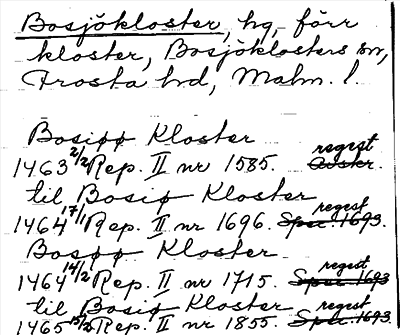 Bosjökloster, hg, förr
kloster, Bosjöklosters sn,
Frosta hd, Malm. l.
Bosiøø Kloster
1463 2/2 Rep. II nr 1585. regest Avskr.
til Bosiø Kloster
1464 17/1 Rep. II nr 1696. regest Spec. 1693.
Bosøø Kloster
1464 14/2 Rep. II nr 1715. regest Spec. 1693
til Bosiø Kloster regest
1465 15/2 Rep. II nr 1855. Spec. 1693.